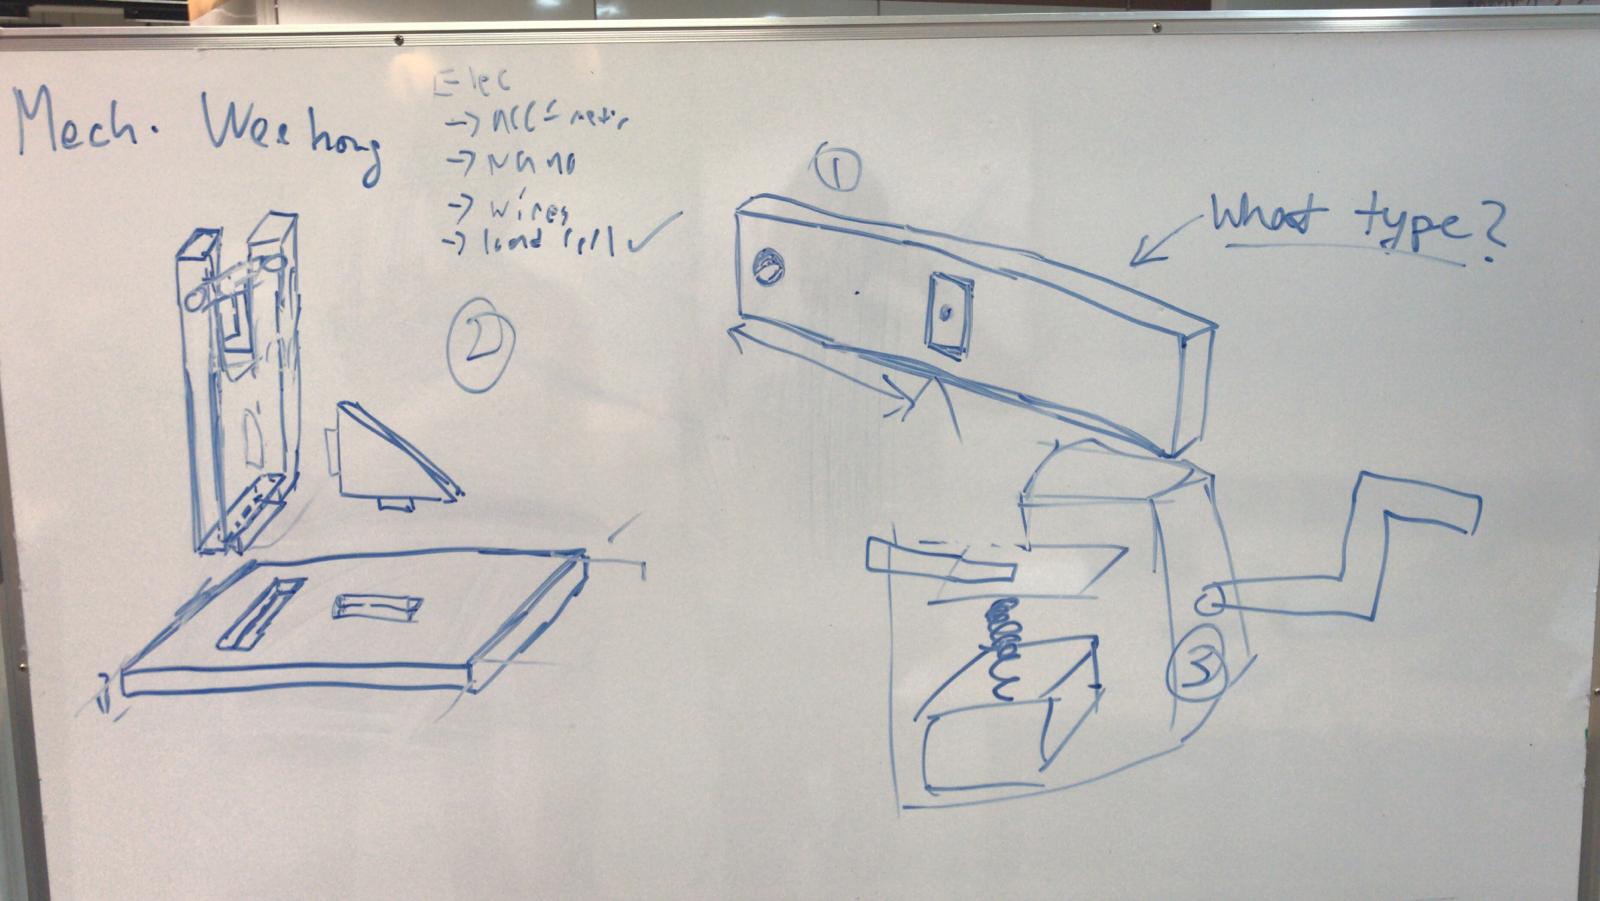 Mech. Weehong
Elec
→ Acc-metr
→ Nano
→ wires
→ load cell ✓
①
What type?
②
③